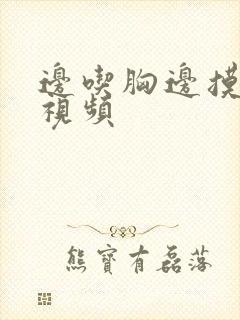 邊喫胸邊摸
視頻
熊寶有磊落